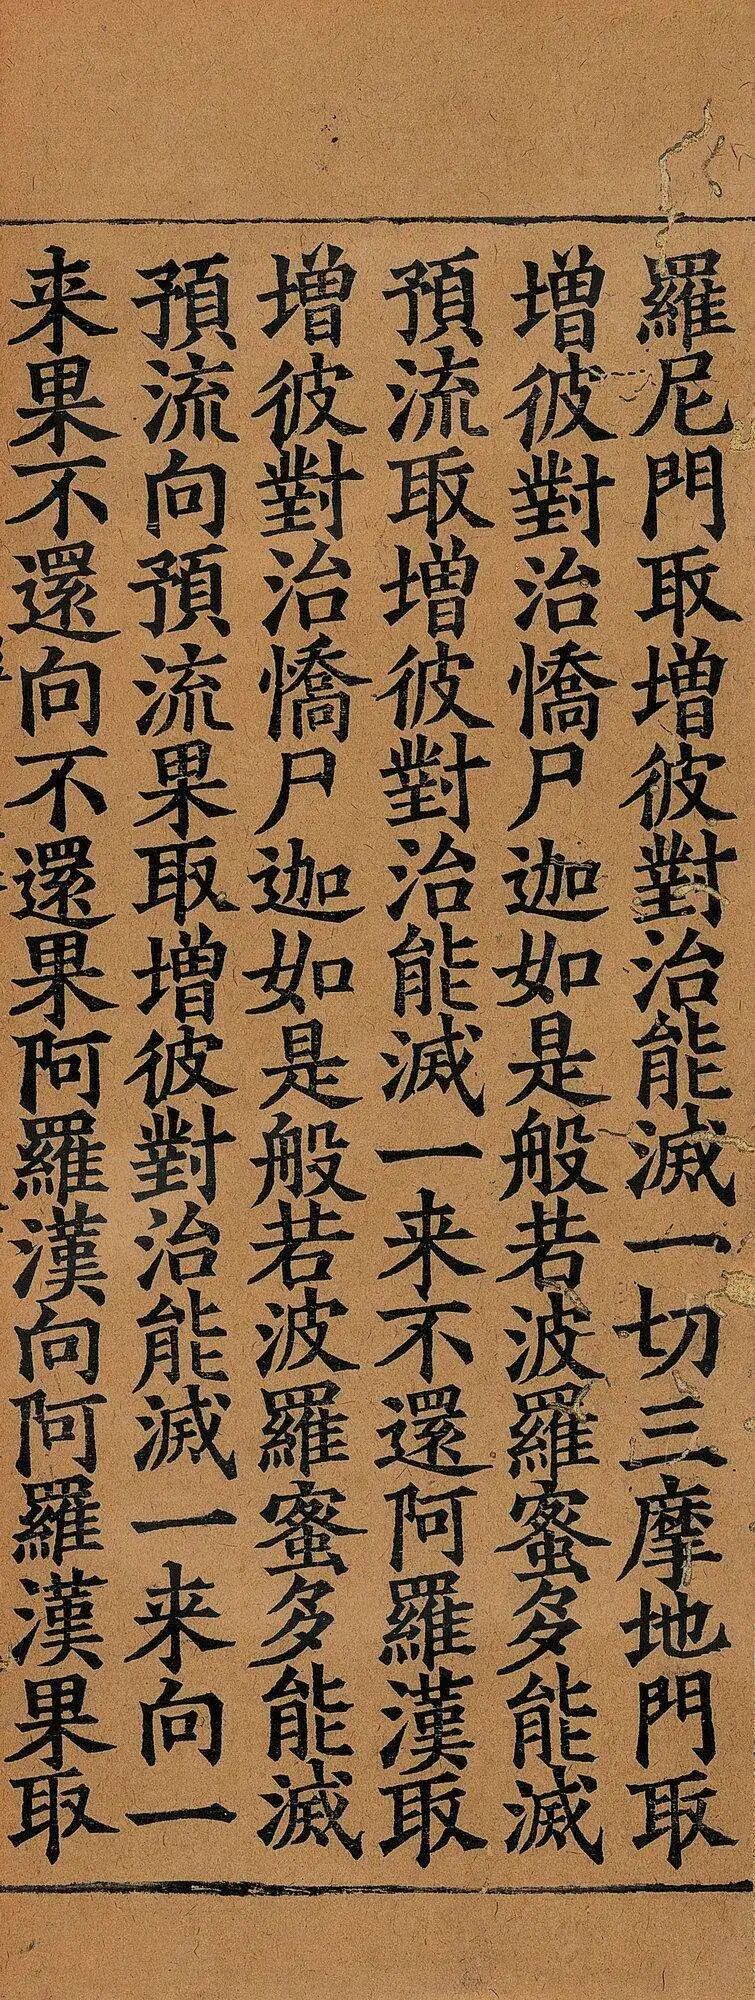 羅尼門取增彼對治能滅一切三摩地門取
增彼對治憍尸迦如是般若波羅蜜多能滅
預流取增彼對治能滅一来不還阿羅漢取
增彼對治憍尸迦如是般若波羅蜜多能滅
預流向預流果取增彼對治能滅一来向一
来果不還向不還果阿羅漢向阿羅漢果取